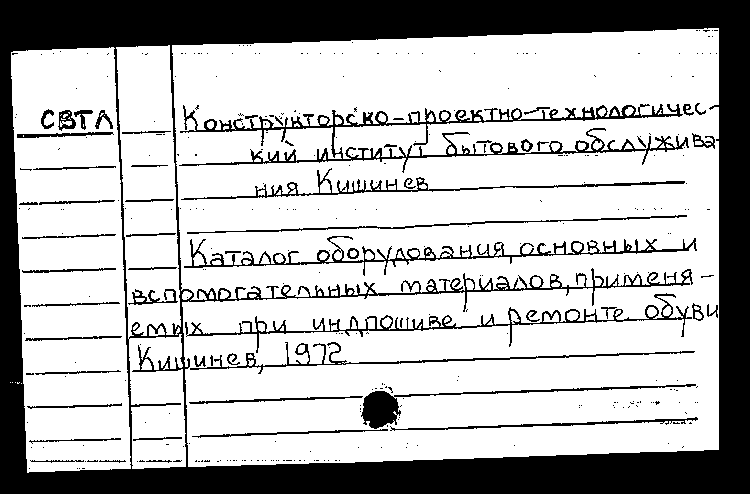 СВТЛ Конструкторско-проектно-технологичес-
кий институт бытового обслужива-
ния Кишинев
Каталог оборудования, основных и
вспомогательных материалов, применя-
емых при индпошиве и ремонте обуви
Кишинев, 1972